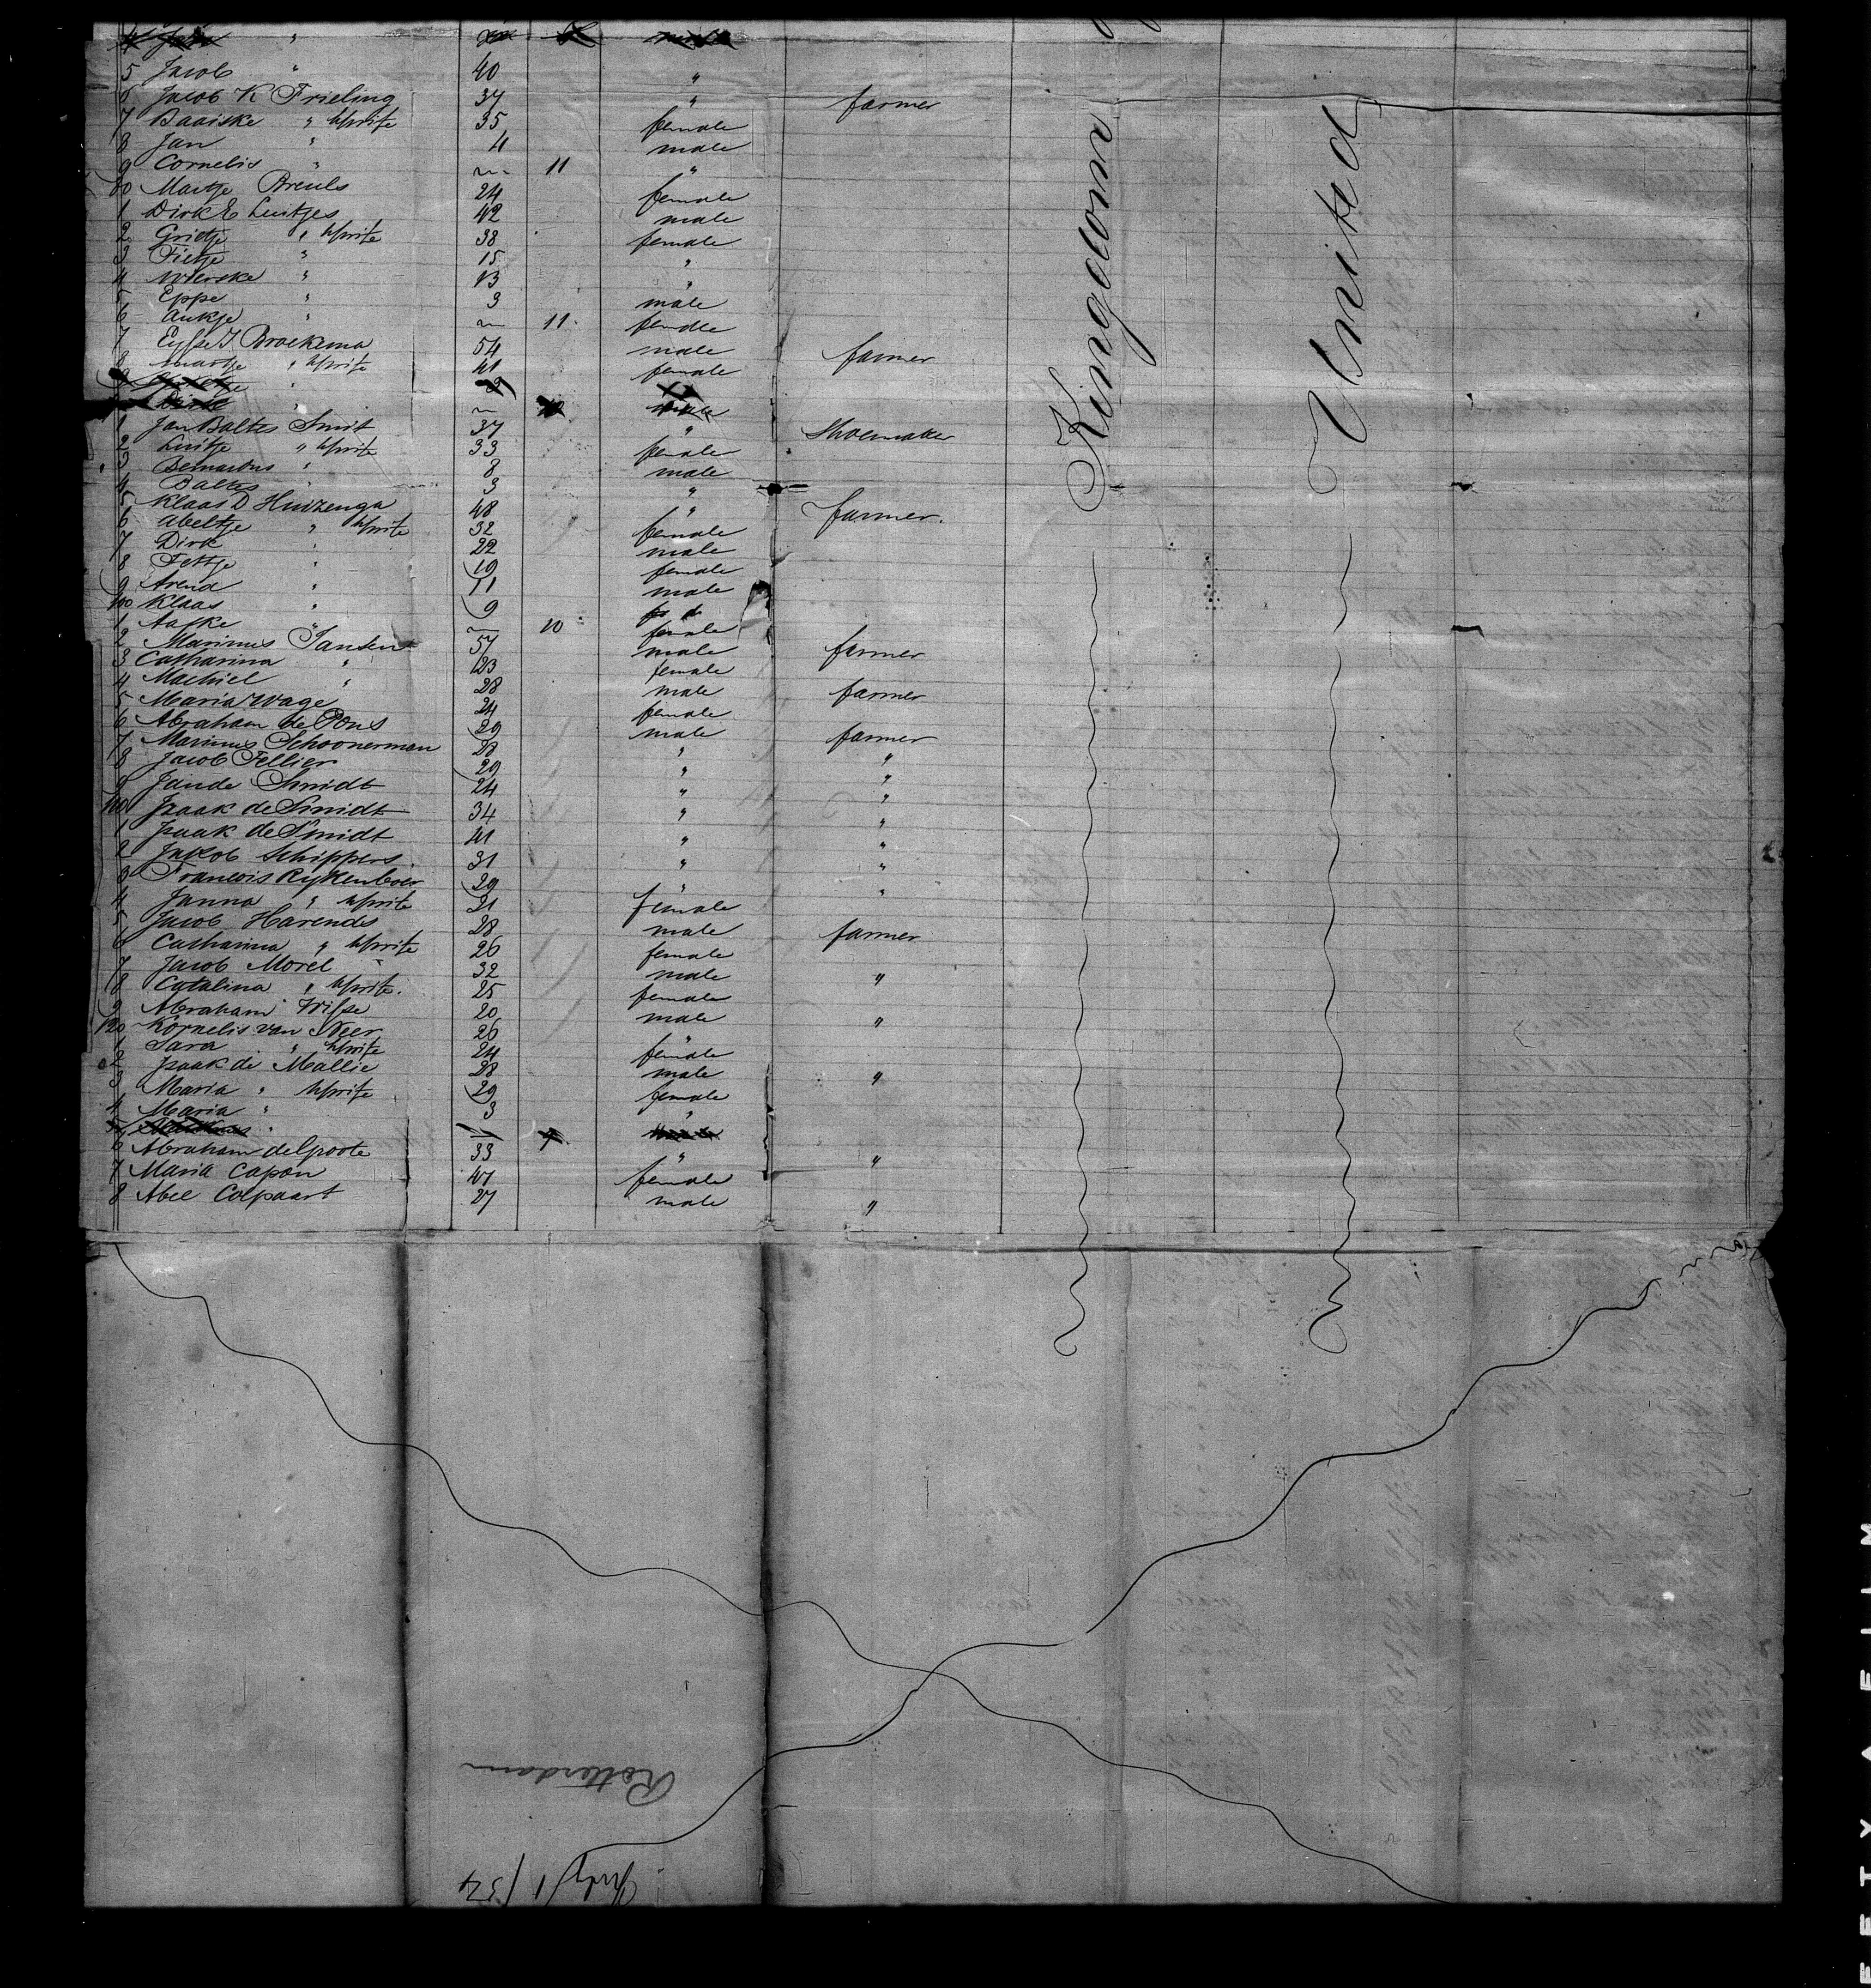 5 Jacob " 40 "
6 Jacob K Frieling 37 " farmer
7 Baaiske " Wife 35 female
8 Jan " 4 male
9 Cornelis " 11 "
80 Martje Breuls 24 female
1 Dirk E Luitjes 42 male
2 Grietje " Wife 38 female
3 Fietje " 15 "
4 " 13 "
5 Eppe " 3 male
6 Aukje " 11 female
7 Broekema 54 male farmer
8 Martje " Wife 41 female
1 Jan Baltes Smit 37 " Shoemaker
2 Luitje " Wife 33 female
3 Bernardus " 8 male
4 Baltes " 3 "
5 Klaas D Huizenga 48 " farmer.
6 Abeltje " Wife 32 female
7 Dirk " 22 male
8 Fettje " 19 female
9 Arend " 11 male
100 Klaas " 9
1 Aafke " 10 female
2 Marinus Jansen 57 male farmer
3 Catharina " 23 female
4 Machiel " 28 male farmer
5 Maria Wage 24 female
6 Abraham de Pons 29 male farmer
7 Marinus Schoonerman 28 " "
8 Jacob Tellier 29 " "
9 Jan de Smidt 24 " "
110 Izaak de Smidt 34 " "
1 Izaak de Smidt 41 " "
2 Jakob Schippers 31 " "
3 Francois Rykenboer 29 " "
4 Janna " Wife 21 female
5 Jacob Harends 28 male farmer
6 Catharina " Wife 26 female
7 Jacob Morel 32 male "
8 Catalina " Wife. 25 female
9 Abraham 20 male "
120 Kornelis van Neer 26 "
1 Sara " Wife 24 female
2 Izaak de Mallie 28 male "
3 Maria " Wife 29 female
4 Maria " 3 "
6 Abraham de Groote 33 " "
7 Maria Capon 47 female
8 Abel Colpaart 27 male "
Kingdom
United
Rotterdam
July 1/54